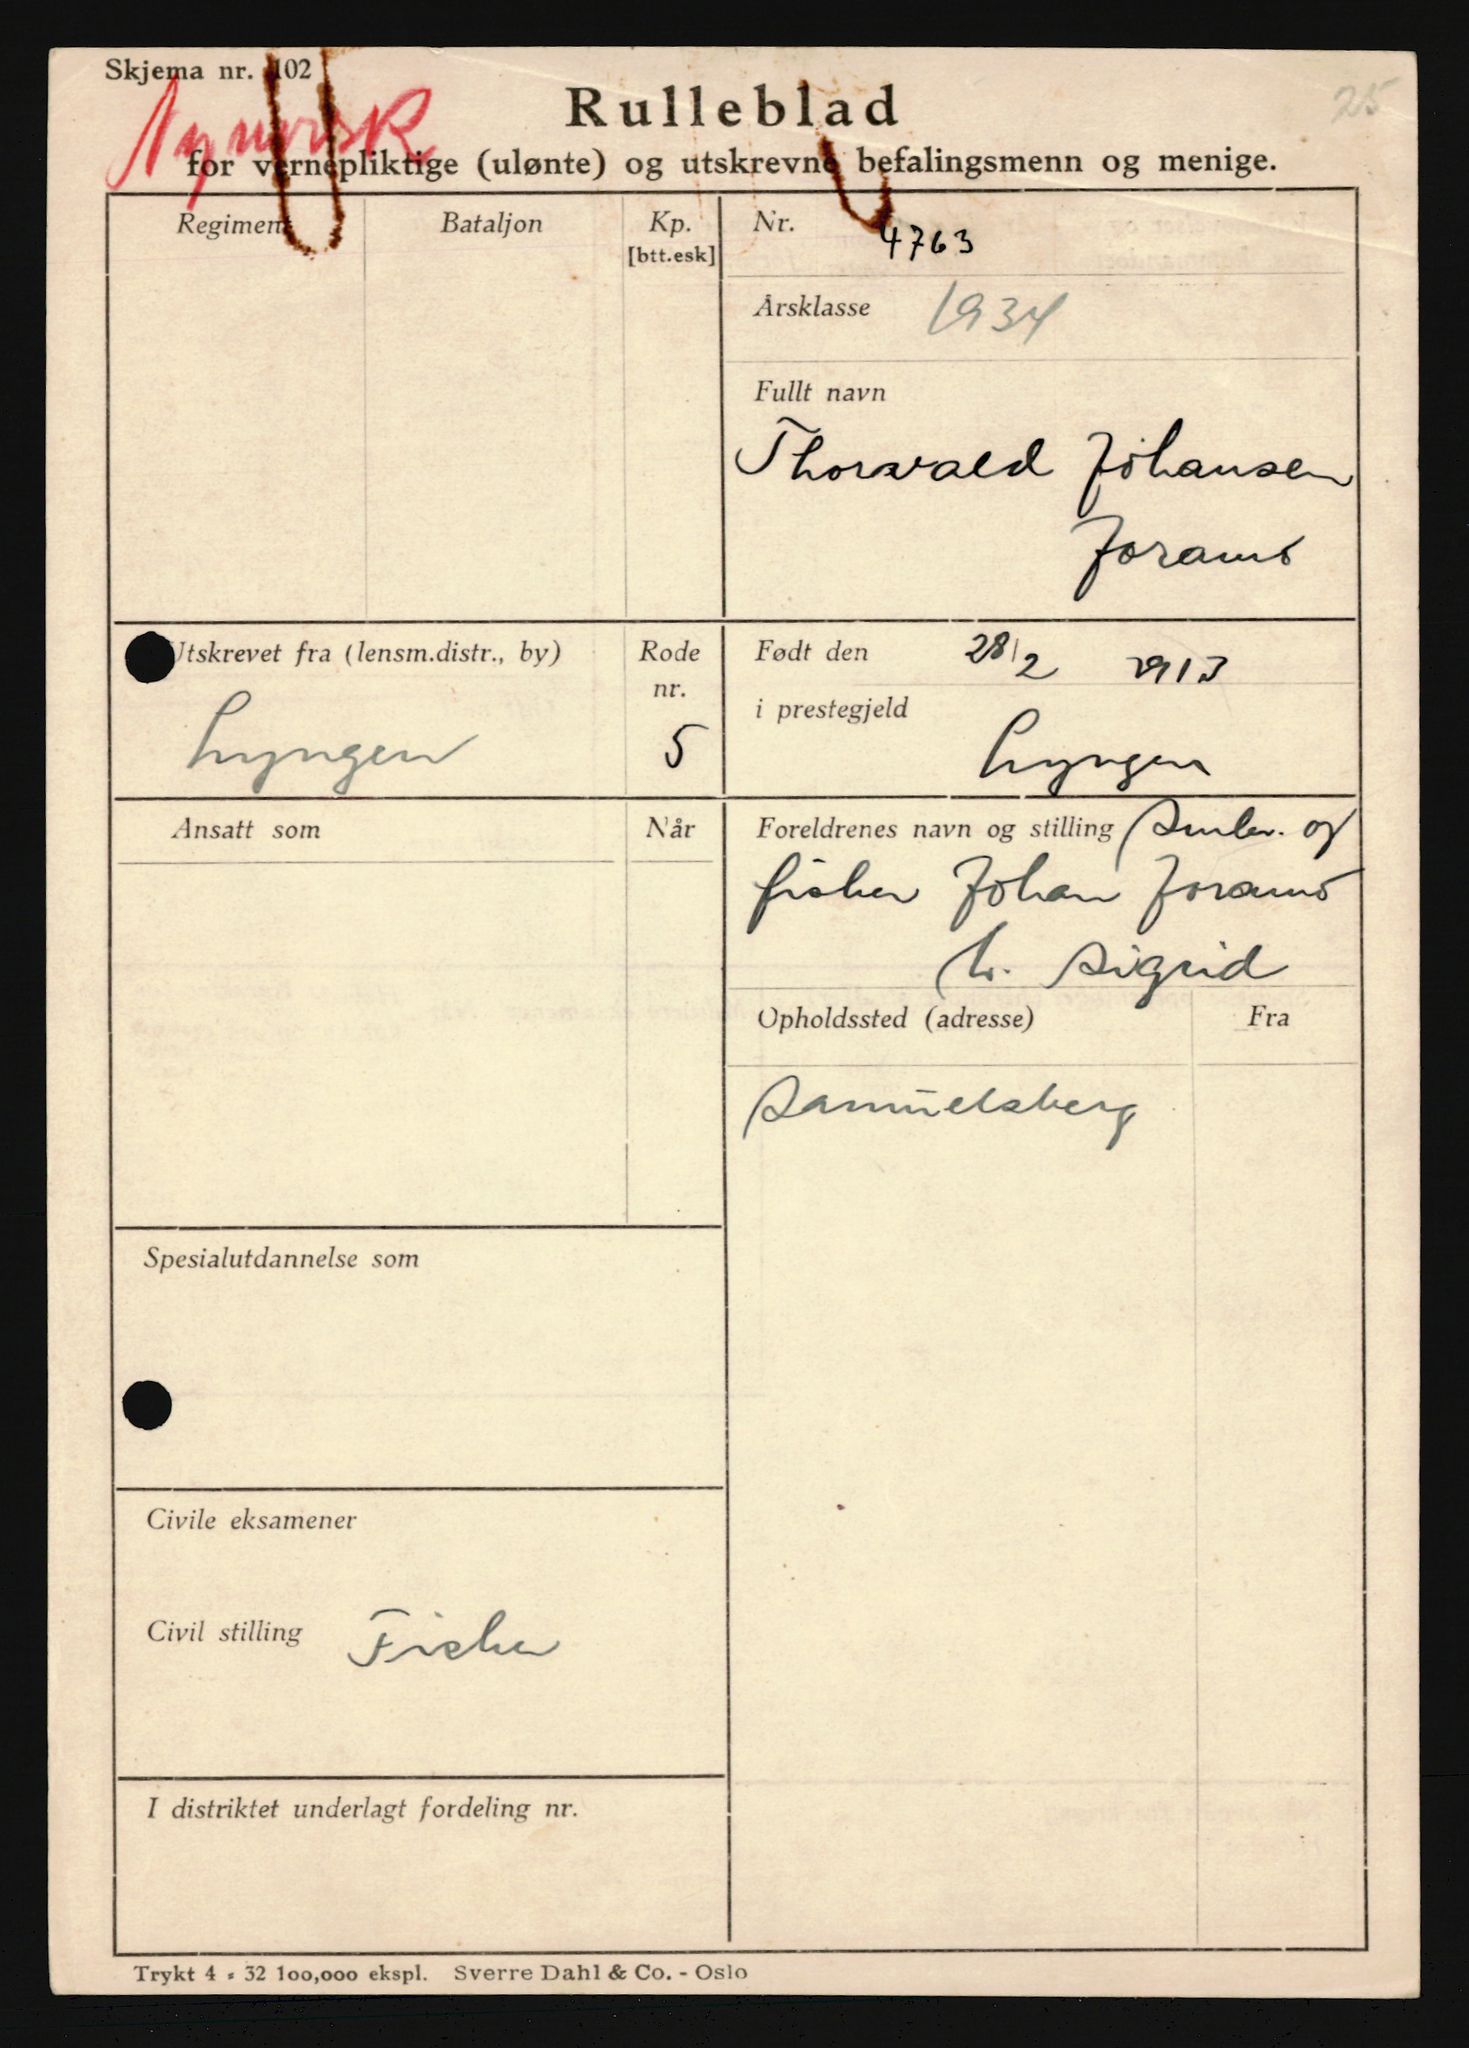 Skjema nr. 102
25
Nynorsk
Rulleblad
for vernepliktige (ulønte) og utskrevne befalingsmenn og menige.
Regiment
Bataljon
Kp.
[btt.esk]
Nr. 4763
Årsklasse 1934
Fullt navn
Thorvald Johansen
Joramo
Utskrevet fra (lensm.distr., by)
Lyngen
Rode
nr.
5
Født den 28/2 1913
i prestegjeld
Lyngen
Ansatt som
Når
Foreldrenes navn og stilling Småbr. og
fisker Johan Joramo
h. Sigrid
Opholdssted (adresse)
Fra
Samuelsberg
Spesialutdannelse som
Civile eksamener
Civil stilling Fisker
I distriktet underlagt fordeling nr.
Trykt 4 - 32 100,000 ekspl. Sverre Dahl & Co. - Oslo